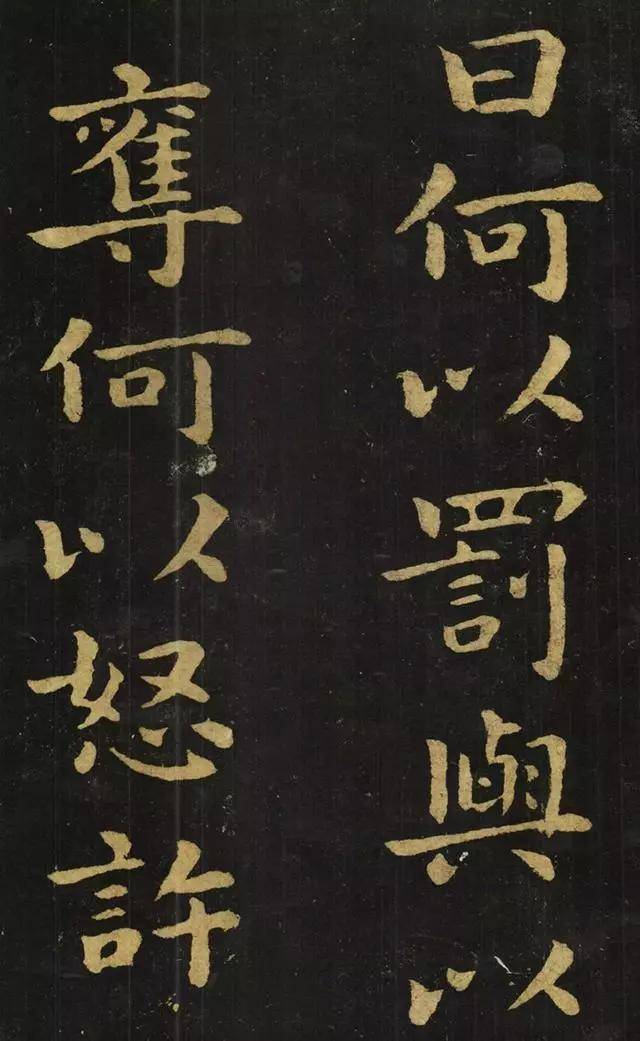 曰何以罰與以
奪何以怒許